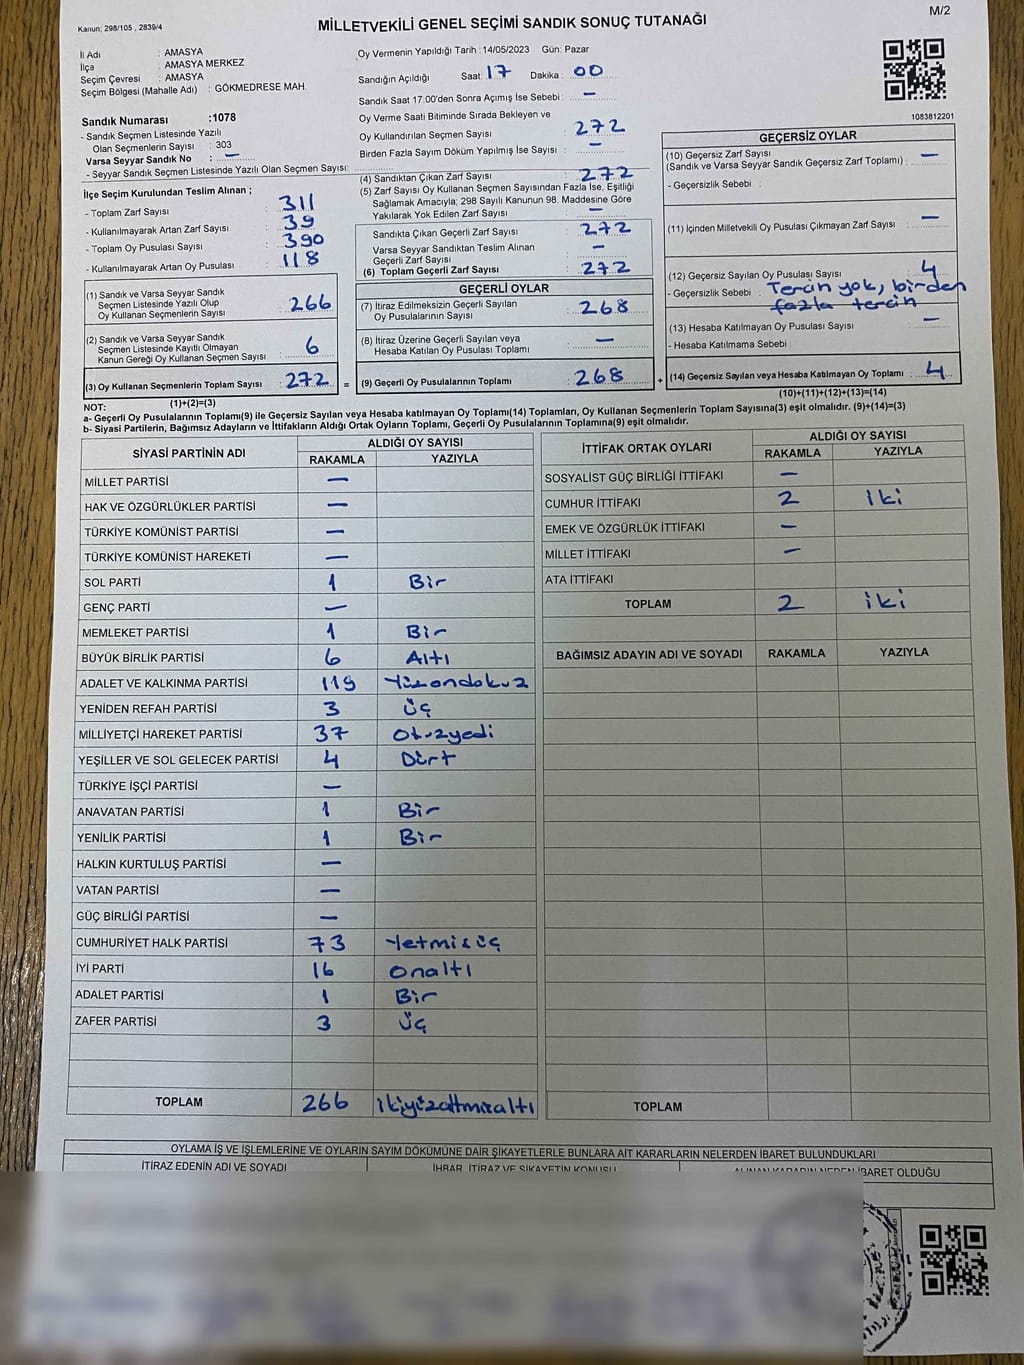 M/2
Kanun; 298/105 , 2839/4
MİLLETVEKİLİ GENEL SEÇİMİ SANDIK SONUÇ TUTANAĞI
İl Adı : AMASYA
İlçe : AMASYA MERKEZ
Seçim Çevresi : AMASYA
Seçim Bölgesi (Mahalle Adı) : GÖKMEDRESE MAH.
Oy Vermenin Yapıldığı Tarih : 14/05/2023 Gün: Pazar
Sandığın Açıldığı Saat: 17 Dakika : 00
Sandık Saat 17:00'den Sonra Açımış İse Sebebi : —
Oy Verme Saati Bitiminde Sırada Bekleyen ve
Oy Kullandırılan Seçmen Sayısı : 272
Birden Fazla Sayım Döküm Yapılmış İse Sayısı : —
1083812201
Sandık Numarası :1078
- Sandık Seçmen Listesinde Yazılı
Olan Seçmenlerin Sayısı : 303
Varsa Seyyar Sandık No : —
- Seyyar Sandık Seçmen Listesinde Yazılı Olan Seçmen Sayısı:
İlçe Seçim Kurulundan Teslim Alınan ;
- Toplam Zarf Sayısı : 311
- Kullanılmayarak Artan Zarf Sayısı : 39
- Toplam Oy Pusulası Sayısı : 390
- Kullanılmayarak Artan Oy Pusulası : 118
(1) Sandık ve Varsa Seyyar Sandık
Seçmen Listesinde Yazılı Olup
Oy Kullanan Seçmenlerin Sayısı : 266
(2) Sandık ve Varsa Seyyar Sandık
Seçmen Listesinde Kayıtlı Olmayan
Kanun Gereği Oy Kullanan Seçmen Sayısı : 6
(3) Oy Kullanan Seçmenlerin Toplam Sayısı : 272 =
(1)+(2)=(3)
(4) Sandıktan Çıkan Zarf Sayısı : 272
(5) Zarf Sayısı Oy Kullanan Seçmen Sayısından Fazla İse, Eşitliği
Sağlamak Amacıyla; 298 Sayılı Kanunun 98. Maddesine Göre
Yakılarak Yok Edilen Zarf Sayısı : —
Sandıkta Çıkan Geçerli Zarf Sayısı : 272
Varsa Seyyar Sandıktan Teslim Alınan
Geçerli Zarf Sayısı : —
(6) Toplam Geçerli Zarf Sayısı : 272
GEÇERLİ OYLAR
(7) İtiraz Edilmeksizin Geçerli Sayılan
Oy Pusulalarının Sayısı : 268
(8) İtiraz Üzerine Geçerli Sayılan veya
Hesaba Katılan Oy Pusulası Toplamı : —
(9) Geçerli Oy Pusulalarının Toplamı : 268 +
GEÇERSİZ OYLAR
(10) Geçersiz Zarf Sayısı
(Sandık ve Varsa Seyyar Sandık Geçersiz Zarf Toplamı) : —
- Geçersizlik Sebebi :
(11) İçinden Milletvekili Oy Pusulası Çıkmayan Zarf Sayısı : —
(12) Geçersiz Sayılan Oy Pusulası Sayısı : 4
- Geçersizlik Sebebi : Tercin yok, birden
fazla tercin
(13) Hesaba Katılmayan Oy Pusulası Sayısı : —
- Hesaba Katılmama Sebebi :
(14) Geçersiz Sayılan veya Hesaba Katılmayan Oy Toplamı : 4
(10)+(11)+(12)+(13)=(14)
NOT:
a- Geçerli Oy Pusulalarının Toplamı(9) ile Geçersiz Sayılan veya Hesaba katılmayan Oy Toplamı(14) Toplamları, Oy Kullanan Seçmenlerin Toplam Sayısına(3) eşit olmalıdır. (9)+(14)=(3)
b- Siyasi Partilerin, Bağımsız Adayların ve İttifakların Aldığı Ortak Oyların Toplamı, Geçerli Oy Pusulalarının Toplamına(9) eşit olmalıdır.
SİYASİ PARTİNİN ADI ALDIĞI OY SAYISI
RAKAMLA YAZIYLA
MİLLET PARTİSİ —
HAK VE ÖZGÜRLÜKLER PARTİSİ —
TÜRKİYE KOMÜNİST PARTİSİ —
TÜRKİYE KOMÜNİST HAREKETİ —
SOL PARTİ 1 Bir
GENÇ PARTİ —
MEMLEKET PARTİSİ 1 Bir
BÜYÜK BİRLİK PARTİSİ 6 Altı
ADALET VE KALKINMA PARTİSİ 119 Yüzondokuz
YENİDEN REFAH PARTİSİ 3 Üç
MİLLİYETÇİ HAREKET PARTİSİ 37 Otuzyedi
YEŞİLLER VE SOL GELECEK PARTİSİ 4 Dört
TÜRKİYE İŞÇİ PARTİSİ —
ANAVATAN PARTİSİ 1 Bir
YENİLİK PARTİSİ 1 Bir
HALKIN KURTULUŞ PARTİSİ —
VATAN PARTİSİ —
GÜÇ BİRLİĞİ PARTİSİ —
CUMHURİYET HALK PARTİSİ 73 Yetmişüç
İYİ PARTİ 16 Onaltı
ADALET PARTİSİ 1 Bir
ZAFER PARTİSİ 3 Üç
TOPLAM 266 ikiyüzaltmışaltı
İTTİFAK ORTAK OYLARI ALDIĞI OY SAYISI
RAKAMLA YAZIYLA
SOSYALİST GÜÇ BİRLİĞİ İTTİFAKI —
CUMHUR İTTİFAKI 2 iki
EMEK VE ÖZGÜRLÜK İTTİFAKI —
MİLLET İTTİFAKI —
ATA İTTİFAKI
TOPLAM 2 iki
BAĞIMSIZ ADAYIN ADI VE SOYADI RAKAMLA YAZIYLA
TOPLAM
OYLAMA İŞ VE İŞLEMLERİNE VE OYLARIN SAYIM DÖKÜMÜNE DAİR ŞİKAYETLERLE BUNLARA AİT KARARLARIN NELERDEN İBARET BULUNDUKLARI
İTİRAZ EDENİN ADI VE SOYADI İHBAR, İTİRAZ VE ŞİKAYETİN KONUSU ALINAN KARARIN NEDEN İBARET OLDUĞU